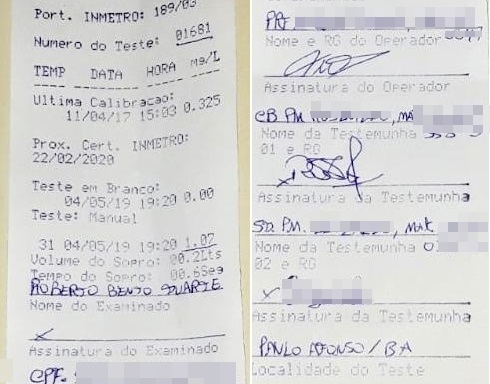 Port. INMETRO: 189/03
Numero do Teste: 01681
TEMP DATA HORA mg/L
Ultima Calibracao:
11/04/17 15:03 0.325
Prox. Cert. INMETRO:
22/02/2020
Teste em Branco:
04/05/19 19:20 0.00
Teste: Manual
31 04/05/19 19:20 1.07
Volume do Sopro: 00.2Lts
Tempo do Sopro: 00.6Seg
ROBERTO BENTO DUARTE
Nome do Examinado
Assinatura do Examinado
CPF.
PRF
Nome e RG do Operador
Assinatura do Operador
CB PM MAT
Nome da Testemunha
01 e RG
Assinatura da Testemunha
SD. PM. MAT
Nome da Testemunha
02 e RG
Assinatura da Testemunha
PAULO AFONSO/BA
Localidade do Teste